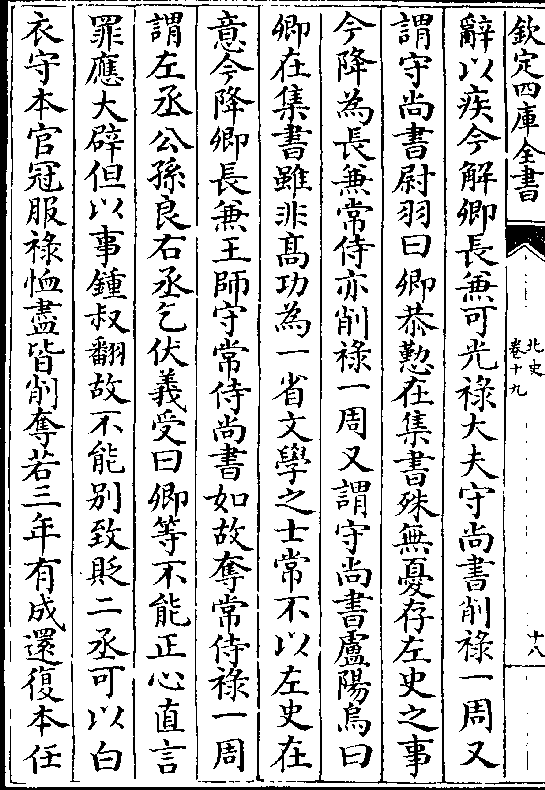 欽定四庫全書
北史
卷十九
十八
辭以疾今解卿長兼可光祿大夫守尚書削祿一周又
謂守尚書尉羽曰卿恭勤在集書殊無憂存左史之事
今降為長兼常侍亦削祿一周又謂守尚書盧陽烏曰
卿在集書雖非髙功為一省文學之士常不以左史在
意今降卿長兼王師守常侍尚書如故奪常侍祿一周
謂左丞公孫良右丞乞伏義受曰卿等不能正心直言
罪應大辟但以事鍾叔翻故不能別致貶二丞可以白
衣守本官冠服祿恤盡皆削奪若三年有成還復本任